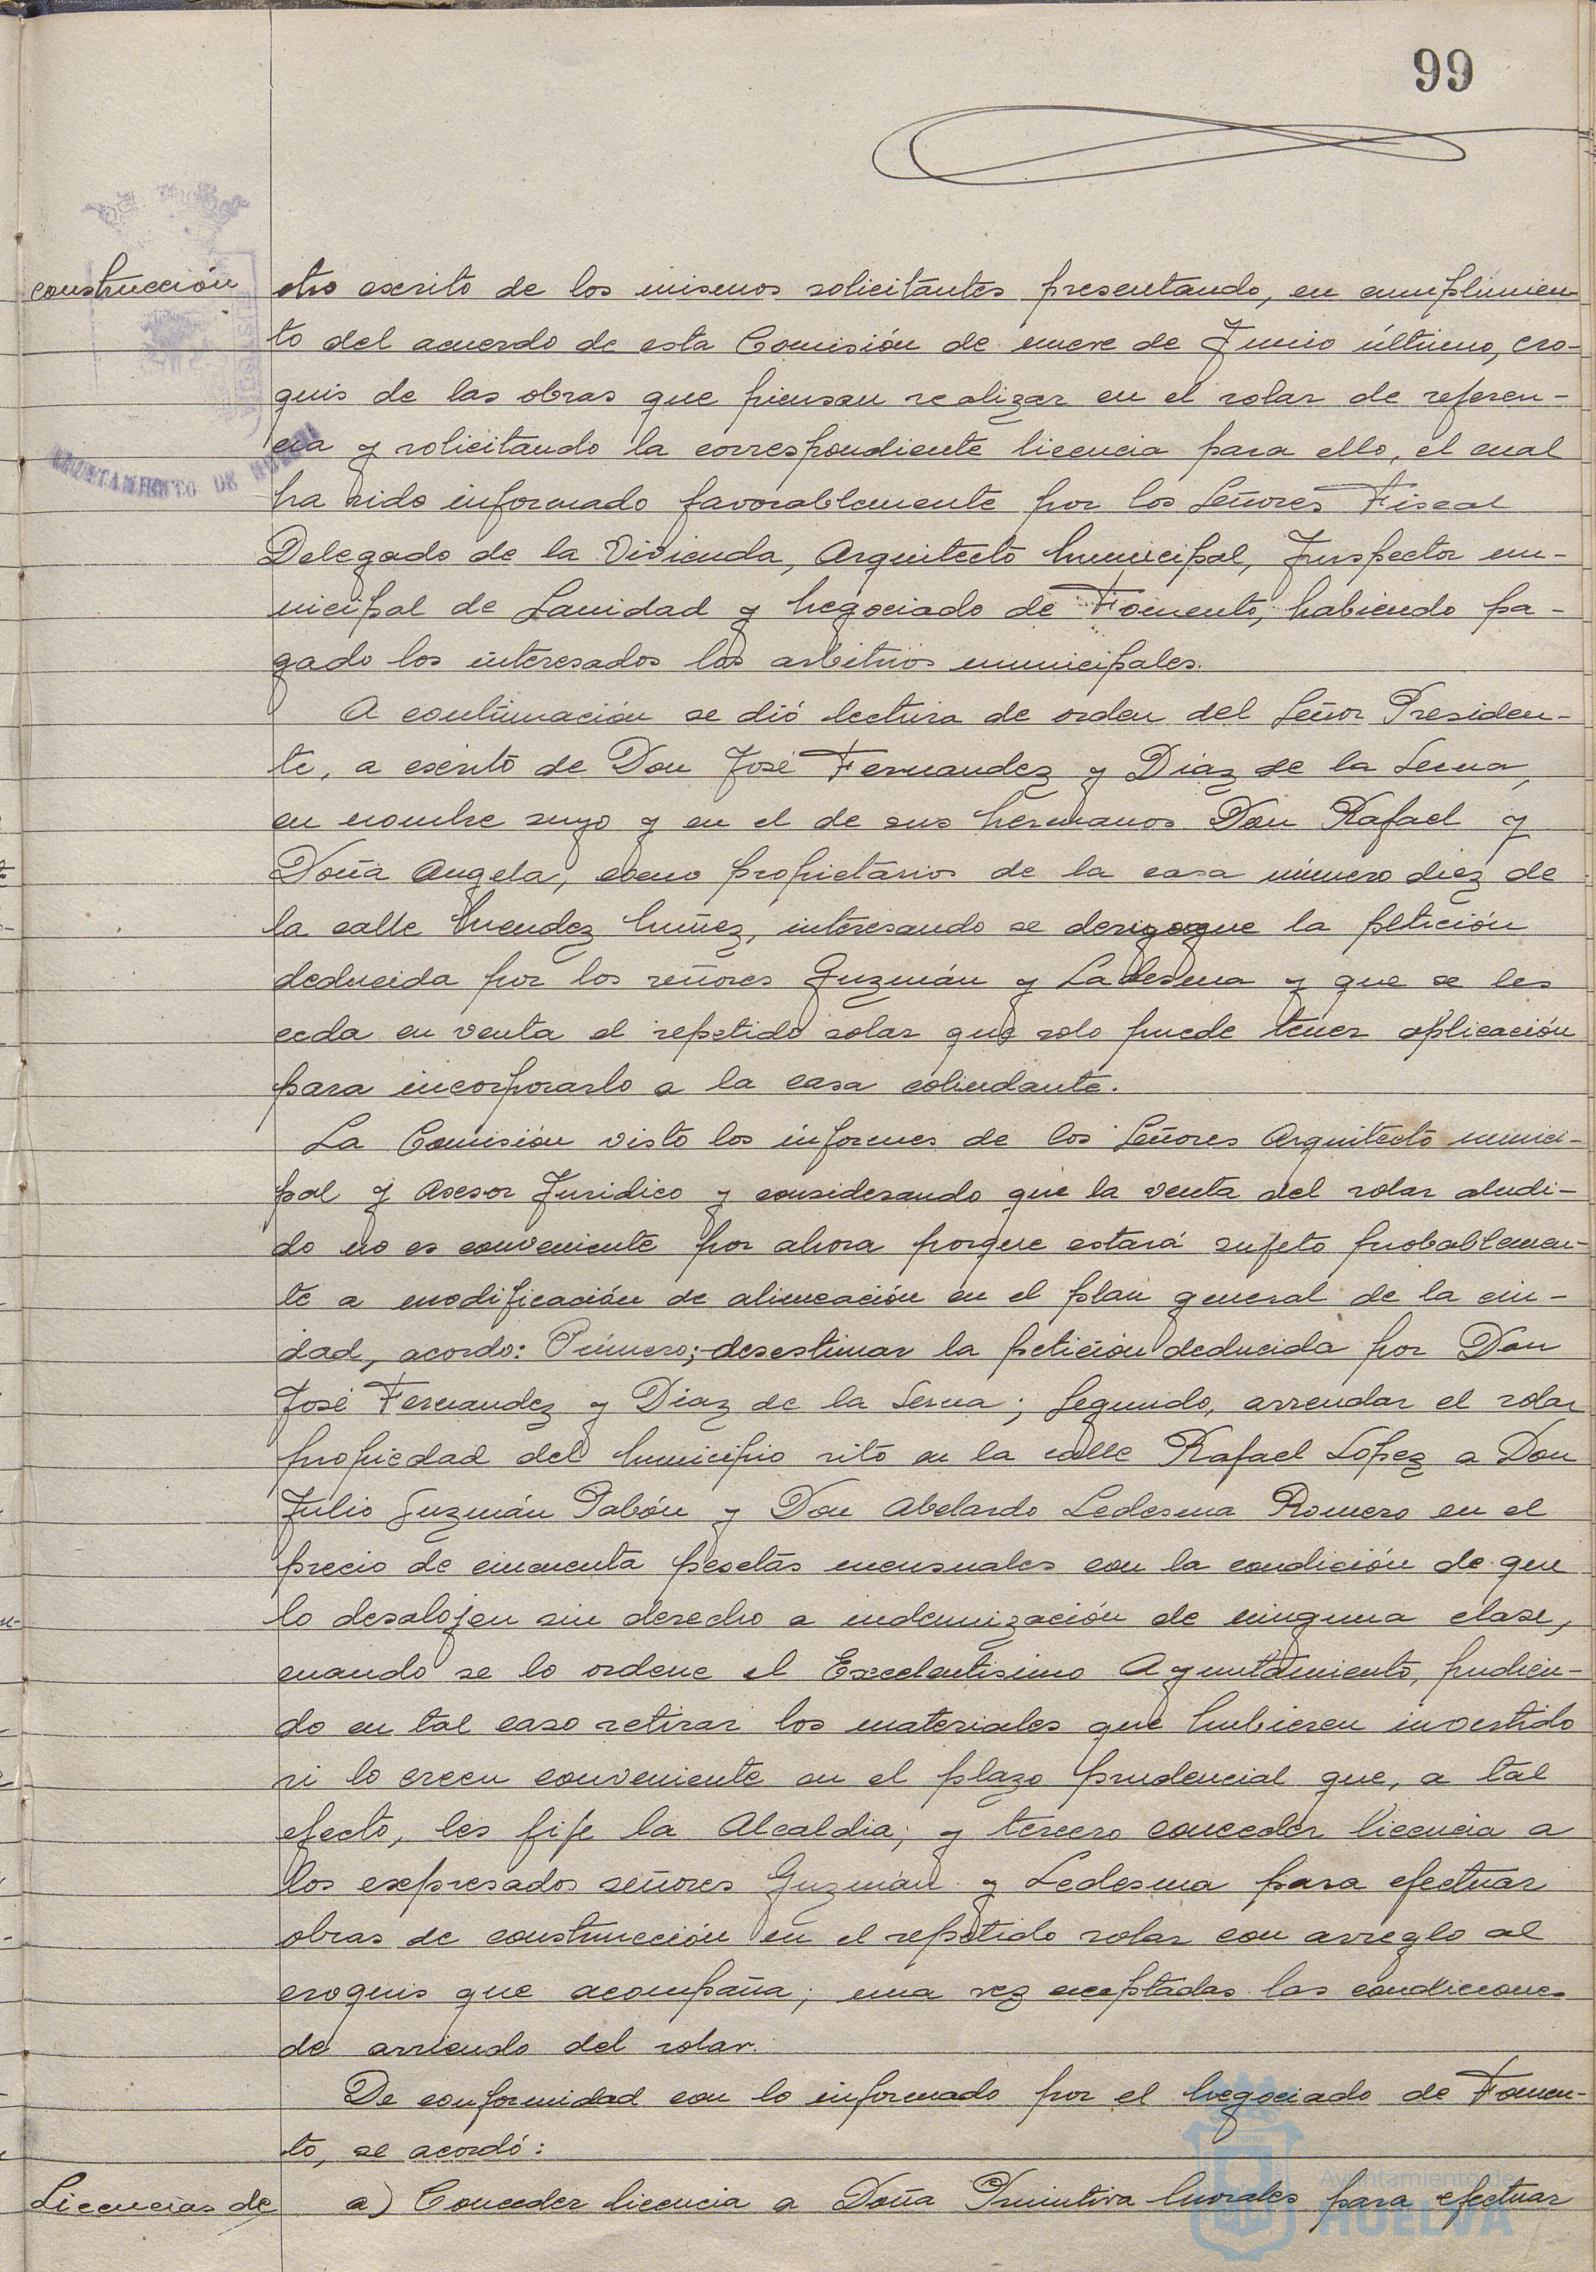 99
construcción
otro escrito de los mismos solicitantes presentando, en cumplimien-
to del acuerdo de esta Comisión de nueve de Junio último, cro-
quis de las obras que piensan realizar en el solar de referen-
cia y solicitando la correspondiente licencia para ello, el cual
ha sido informado favorablemente por los Señores Fiscal
Delegado de la Vivienda, Arquitecto Municipal, Inspector mu-
nicipal de Sanidad y Negociado de Fomento, habiendo pa-
gado los interesados los arbitrios municipales.
A continuación se dió lectura de orden del Señor Presiden-
te, a escrito de Don José Fernandez y Diaz de la Serna,
en nombre suyo y en el de sus hermanos Don Rafael y
Doña Angela, como propietarios de la casa número diez de
la calle Mendez Nuñez, interesando se la petición
deducida por los señores Guzmán y Ladesma y que se les
ceda en venta el repetido solar que solo puede tener aplicación
para incorporarlo a la casa colindante.
La Comisión visto los informes de los Señores Arquitecto munici-
pal y Asesor Juridico y considerando que la venta del solar aludi-
do no es conveniente por ahora porque estará sujeto probablemen-
te a modificación de alineación en el plan general de la ciu-
dad, acordo: Primero; desestimar la petición deducida por Don
José Fernandez y Diaz de la Serna; Segundo, arrendar el solar
propiedad del Municipio sito en la calle Rafael López a Don
Julio Guzmán Pabón y Don Abelardo Ledesma Romero en el
precio de cincuenta pesetas mensuales con la condición de que
lo desalojen sin derecho a indemnización de ninguna clase,
cuando se lo ordene el Excelentisimo Ayuntamiento, pudien-
do en tal caso retirar los materiales que hubieren invertido
si lo creen conveniente en el plazo prudencial que, a tal
efecto, les fije la Alcaldia; y tercero conceder licencia a
los expresados señores Guzmán y Ledesma para efectuar
obras de construcción en el repetido solar con arreglo al
croquis que acompaña; una vez aceptadas las condiciones
de arriendo del solar.
De conformidad con lo informado por el Negociado de Fomen-
to, se acordó:
Licencias de
a) Conceder licencia a Doña Primitiva Morales para efectuar
AYUNTAMIENTO DE HUELVA
Ayuntamiento de
HUELVA